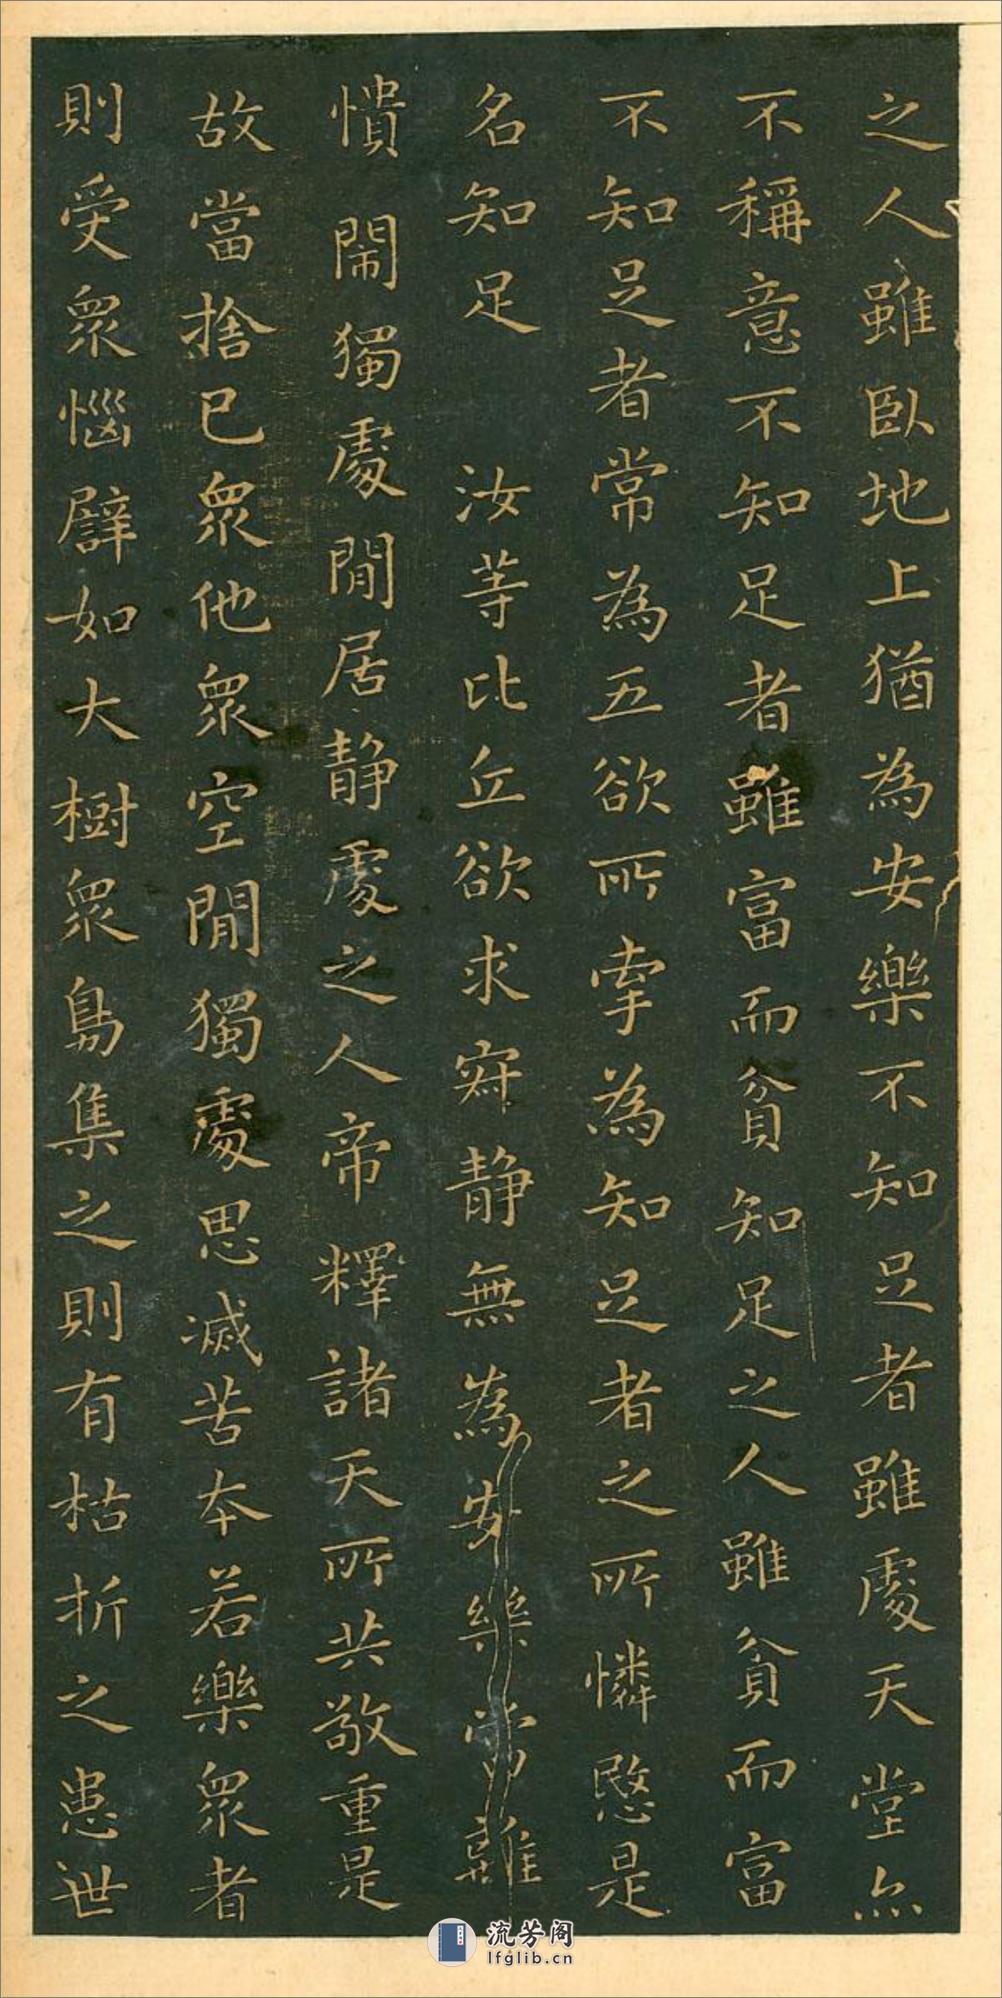 之人雖臥地上猶為安樂不知足者雖處天堂亦
不稱意不知足者雖富而貧知足之人雖貧而富
不知足者常為五欲所牽為知足者之所憐愍是
名知足 汝等比丘欲求寂靜無為安樂當離
憒閙獨處閒居靜處之人帝釋諸天所共敬重是
故當捨已衆他衆空閒獨處思滅苦本若樂衆者
則受衆惱譬如大樹衆鳥集之則有枯折之患世
流芳阁
lfglib.cn